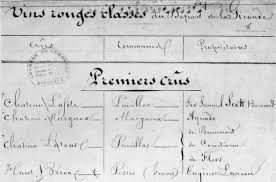 Vins rouges classés du Départ de la Gironde
Crûs Communes Propriétaires
Premiers Crûs
Château Lafite Pauillac Sir Samuel Scott
Château Margaux Margaux Aguado
de Beaumont
Château Latour Pauillac de Courtivron
de Flers
Haut Brion Pessac Eugène Larrieu